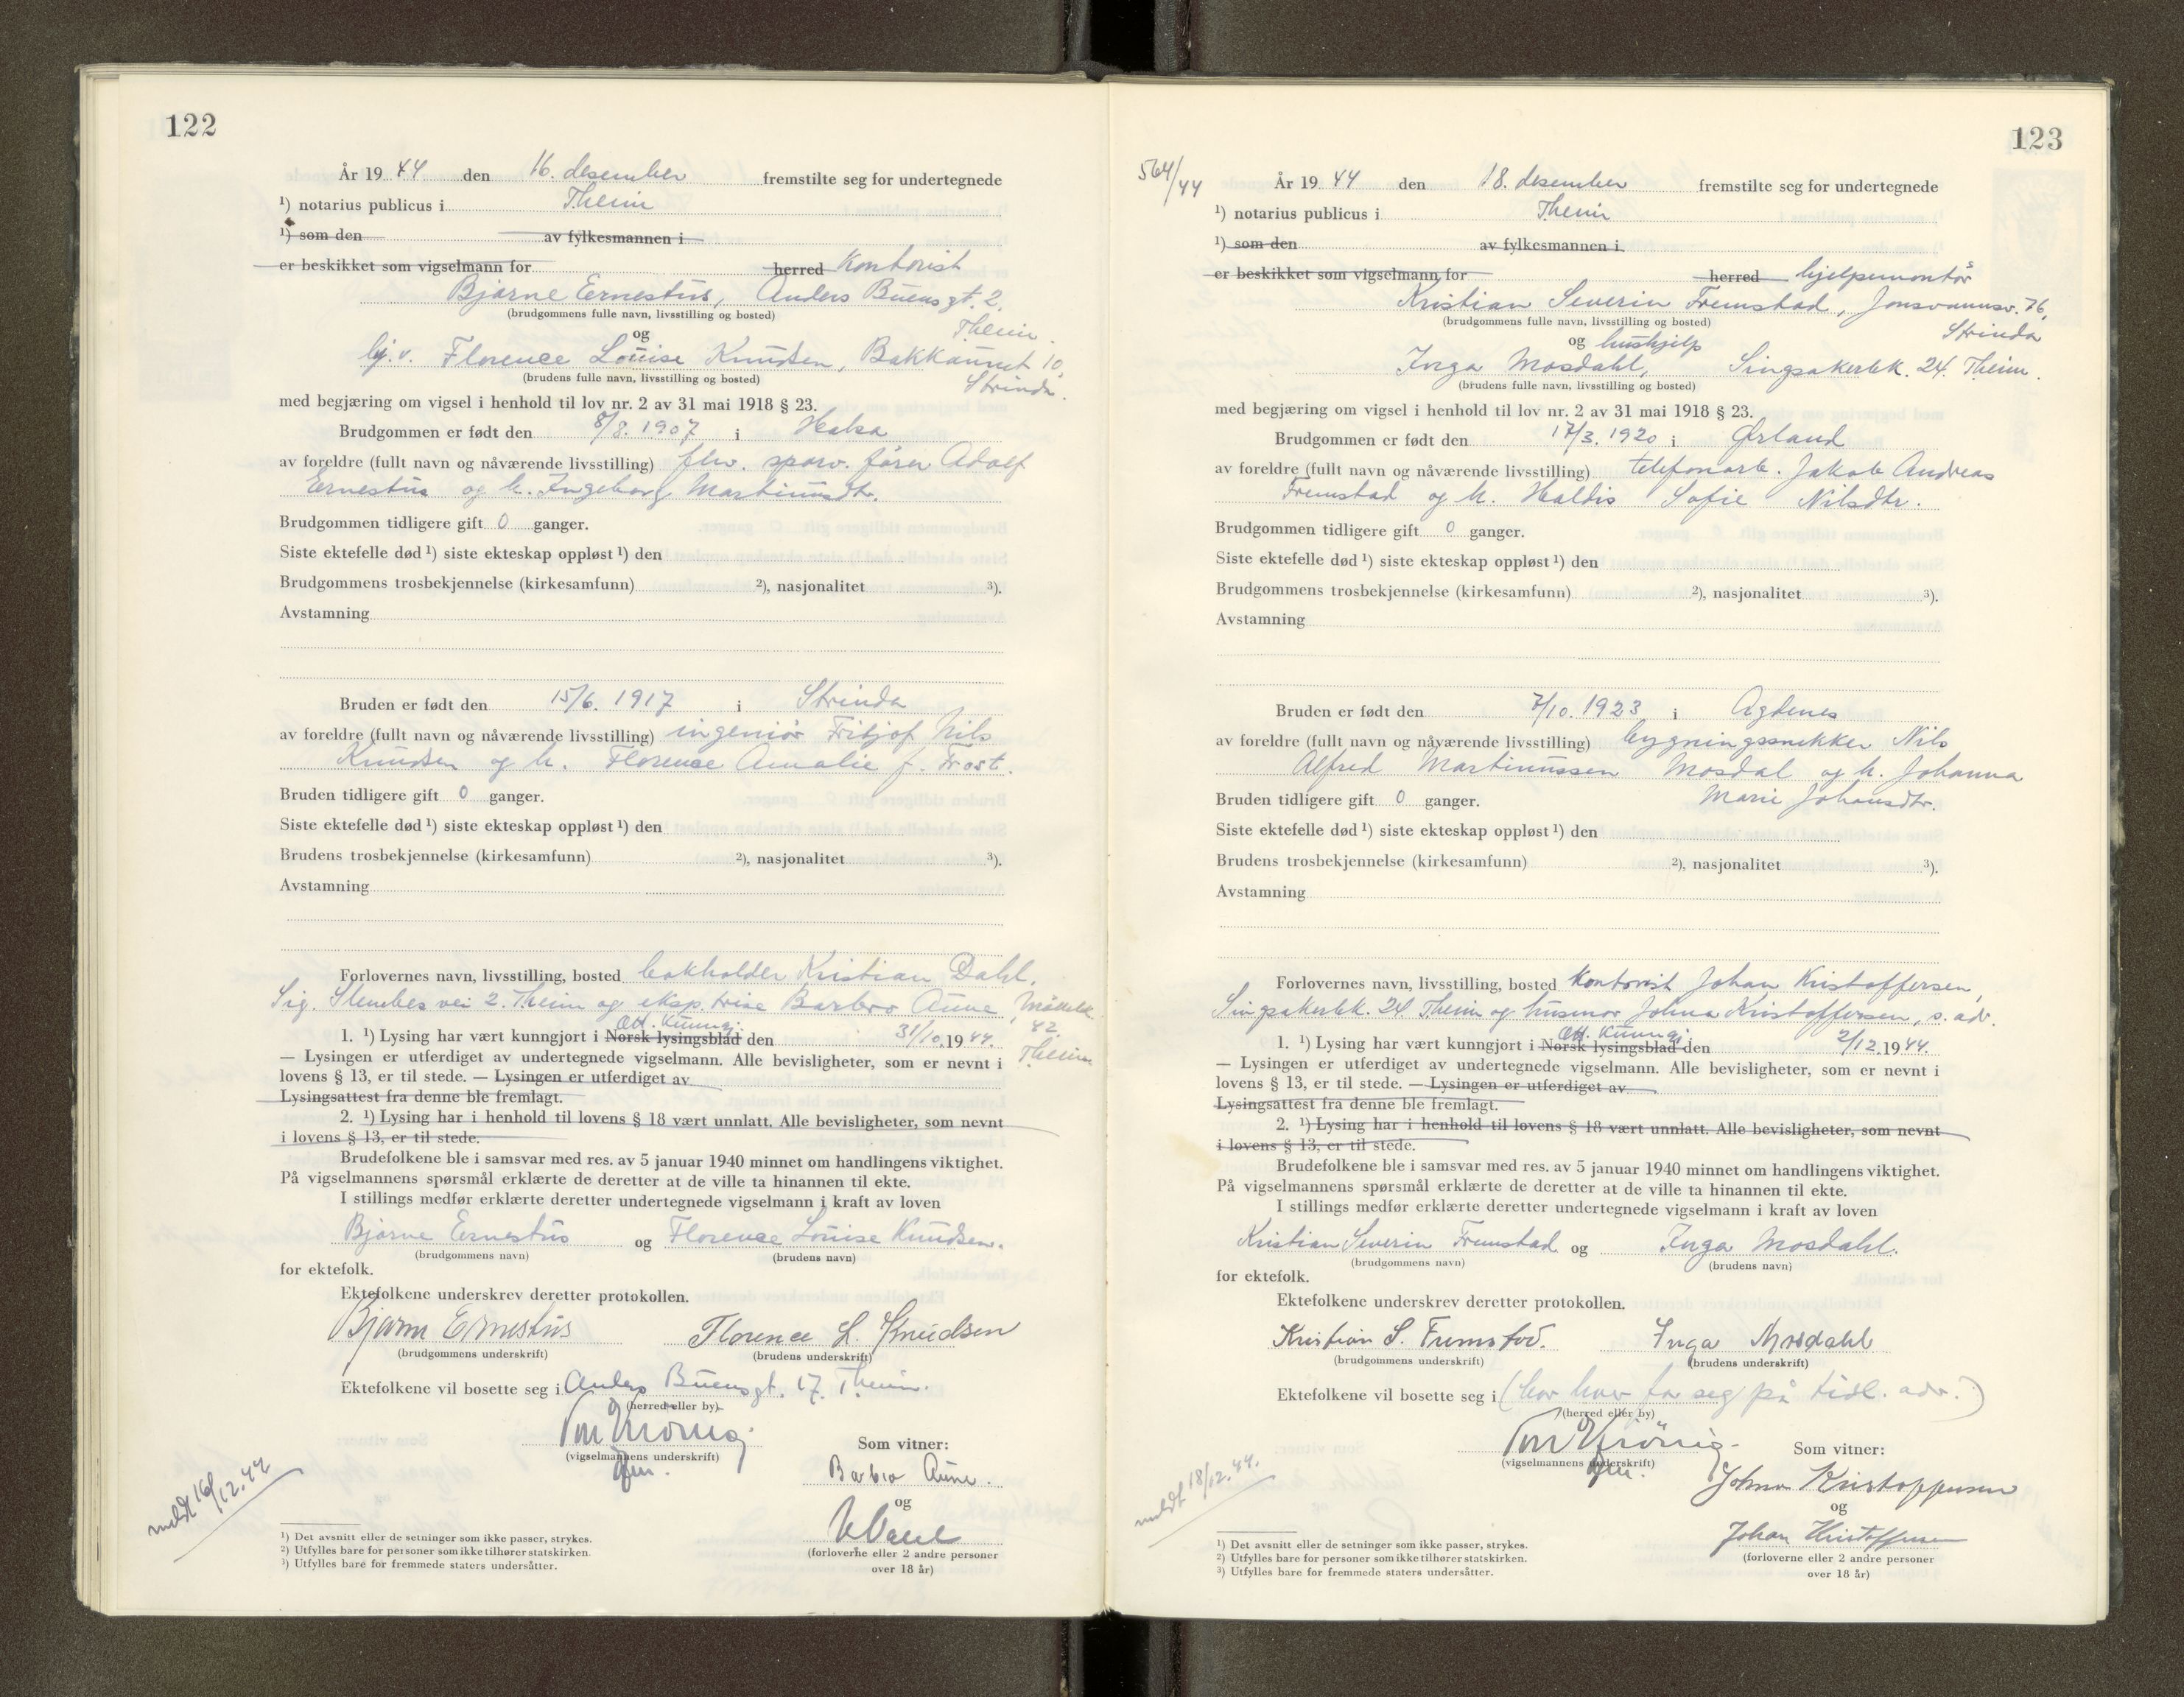 122
År 1944 den 16. desember fremstilte seg for undertegnede
¹) notarius publicus i Theim
¹) som den av fylkesmannen i
er beskikket som vigselmann for herred Kontorist
Bjarne Ernestus, Anders Buens gt. 2,
(brudgommens fulle navn, livsstilling og bosted)
Theim.
og
hj.v. Florence Louise Knudsen, Bakkaunet 10,
(brudens fulle navn, livsstilling og bosted)
Strinda.
med begjæring om vigsel i henhold til lov nr. 2 av 31 mai 1918 § 23.
Brudgommen er født den 8/8. 1907 i Halsa
av foreldre (fullt navn og nåværende livsstilling) fhv. sporv. fører Adolf
Ernestus og h. Ingeborg Martinusdtr.
Brudgommen tidligere gift 0 ganger.
Siste ektefelle død ¹) siste ekteskap oppløst ¹) den
Brudgommens trosbekjennelse (kirkesamfunn) ²), nasjonalitet ³).
Avstamning
Bruden er født den 15/6. 1917 i Strinda
av foreldre (fullt navn og nåværende livsstilling) ingeniør Fritjof Nils
Knudsen og h. Florence Amalie f. Frost.
Bruden tidligere gift 0 ganger.
Siste ektefelle død ¹) siste ekteskap oppløst ¹) den
Brudens trosbekjennelse (kirkesamfunn) ²), nasjonalitet ³).
Avstamning
Forlovernes navn, livsstilling, bosted bokholder Kristian Dahl,
Sig. vei 2. Theim og eksp.trise Barbro Aune,
82.
Off. Kunngj.
1. ¹) Lysing har vært kunngjort i Norsk lysingsblad den 31/10. 1944.
Theim
— Lysingen er utferdiget av undertegnede vigselmann. Alle bevisligheter, som er nevnt i
lovens § 13, er til stede. — Lysingen er utferdiget av
Lysingsattest fra denne ble fremlagt.
2. ¹) Lysing har i henhold til lovens § 18 vært unnlatt. Alle bevisligheter, som nevnt
i lovens § 13, er til stede.
Brudefolkene ble i samsvar med res. av 5 januar 1940 minnet om handlingens viktighet.
På vigselmannens spørsmål erklærte de deretter at de ville ta hinannen til ekte.
I stillings medfør erklærte deretter undertegnede vigselmann i kraft av loven
Bjarne Ernestus og Florence Louise Knudsen.
(brudgommens navn) (brudens navn)
for ektefolk.
Ektefolkene underskrev deretter protokollen.
Bjarne Ernestus Florence L. Knudsen
(brudgommens underskrift) (brudens underskrift)
Ektefolkene vil bosette seg i Anders Buens gt. 17. Theim.
(herred eller by)
(vigselmannens underskrift)
Som vitner:
Barbro Aune.
og
(forloverne eller 2 andre personer
over 18 år)
meldt 16/12.44
¹) Det avsnitt eller de setninger som ikke passer, strykes.
²) Utfylles bare for personer som ikke tilhører statskirken.
³) Utfylles bare for fremmede staters undersåtter.
123
564/44
År 1944 den 18. desember fremstilte seg for undertegnede
¹) notarius publicus i Theim
¹) som den av fylkesmannen i
er beskikket som vigselmann for herred hjelpemontør
Kristian Severin Fremstad, Jonsvannsv. 76,
(brudgommens fulle navn, livsstilling og bosted)
Strinda
og hushjelp
Inga Mosdahl, Singsakerbk. 24. Theim.
(brudens fulle navn, livsstilling og bosted)
med begjæring om vigsel i henhold til lov nr. 2 av 31 mai 1918 § 23.
Brudgommen er født den 17/3. 1920 i Ørland
av foreldre (fullt navn og nåværende livsstilling) telefonarb. Jakob Andreas
Fremstad og h. Haldis Sofie Nilsdtr.
Brudgommen tidligere gift 0 ganger.
Siste ektefelle død ¹) siste ekteskap oppløst ¹) den
Brudgommens trosbekjennelse (kirkesamfunn) ²), nasjonalitet ³).
Avstamning
Bruden er født den 7/10. 1923 i Agdenes
av foreldre (fullt navn og nåværende livsstilling) bygningssnekker Nils
Alfred Martinussen Mosdal og h. Johanna
Bruden tidligere gift 0 ganger. Marie Johansdtr.
Siste ektefelle død ¹) siste ekteskap oppløst ¹) den
Brudens trosbekjennelse (kirkesamfunn) ²), nasjonalitet ³).
Avstamning
Forlovernes navn, livsstilling, bosted Kontorist Johan Kristoffersen,
Singsakerbk. 24. Theim og husmor Johna Kristoffersen, s. adr.
Off. Kunngj.
1. ¹) Lysing har vært kunngjort i Norsk lysingsblad den 2/12. 1944.
— Lysingen er utferdiget av undertegnede vigselmann. Alle bevisligheter, som er nevnt i
lovens § 13, er til stede. — Lysingen er utferdiget av
Lysingsattest fra denne ble fremlagt.
2. ¹) Lysing har i henhold til lovens § 18 vært unnlatt. Alle bevisligheter, som nevnt
i lovens § 13, er til stede.
Brudefolkene ble i samsvar med res. av 5 januar 1940 minnet om handlingens viktighet.
På vigselmannens spørsmål erklærte de deretter at de ville ta hinannen til ekte.
I stillings medfør erklærte deretter undertegnede vigselmann i kraft av loven
Kristian Severin Fremstad og Inga Mosdahl.
(brudgommens navn) (brudens navn)
for ektefolk.
Ektefolkene underskrev deretter protokollen.
Kristian S. Fremstad. Inga Mosdahl
(brudgommens underskrift) (brudens underskrift)
Ektefolkene vil bosette seg i (hver for seg på tidl. adr.)
(herred eller by)
(vigselmannens underskrift)
Som vitner:
Johna Kristoffersen
og
Johan Kristoffersen
(forloverne eller 2 andre personer
over 18 år)
meldt 18/12.44.
¹) Det avsnitt eller de setninger som ikke passer, strykes.
²) Utfylles bare for personer som ikke tilhører statskirken.
³) Utfylles bare for fremmede staters undersåtter.